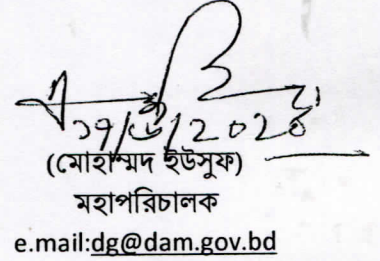 (মোহাম্মদ ইউসুফ)
মহাপরিচালক
e.mail:dg@dam.gov.bd